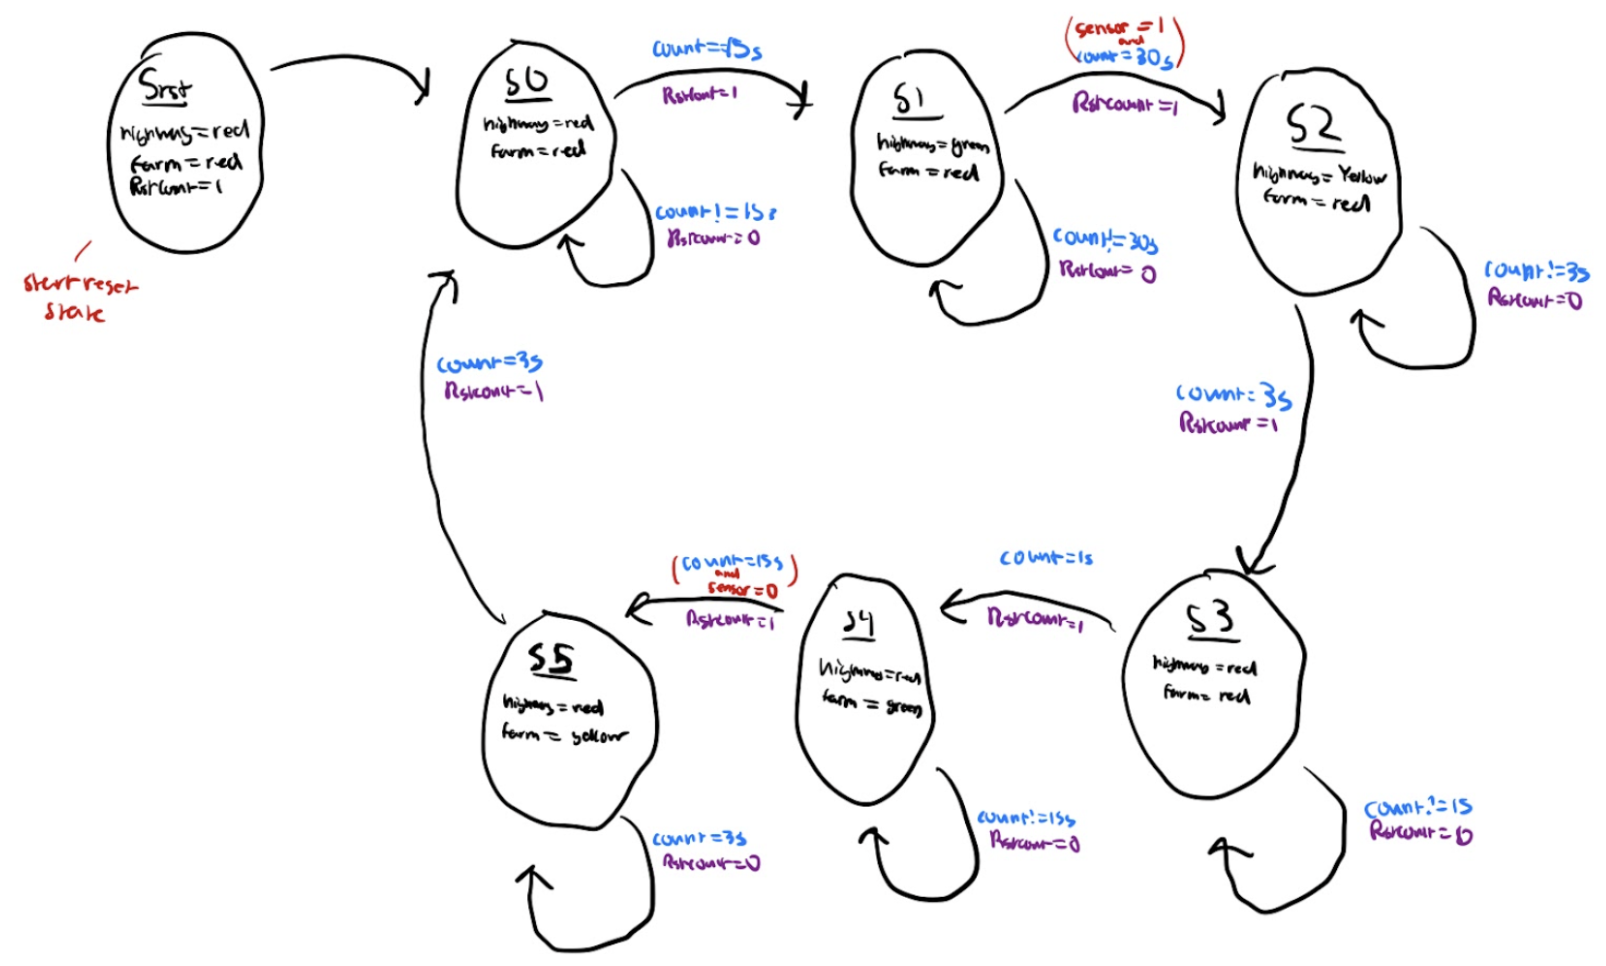 Srst
highway=red
farm=red
RstCount=1
start reset
state
S0
highway=red
farm=red
count=15s
RstCount=1
count!=15s
Rstcount=0
S1
highway=green
farm=red
(sensor=1
and
count=30s)
Rstcount=1
count!=30s
RstCount=0
S2
highway=Yellow
farm=red
count!=3s
Rstcount=0
count=3s
Rstcount=1
count=3s
Rstcount=1
S3
highway=red
farm=red
count!=1s
Rstcount=0
count=1s
Rstcount=1
S4
highway=red
farm=green
(count=15s
and
sensor=0)
Rstcount=1
count!=15s
Rstcount=0
S5
highway=red
farm=yellow
count=3s
Rstcount=0